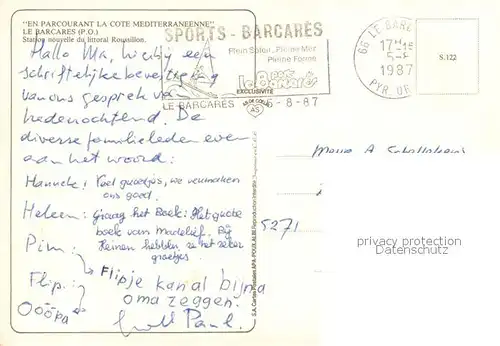 "EN PARCOURANT LA COTE MEDITERRANEENNE"
LE BARCARES (P.O.)
Station nouvelle du littoral Roussillon.
SPORTS - BARCARÈS
Plein Soleil, Pleine Mer
Pleine Forme
LE BARCARES
EXCLUSIVITE
AS DE COEUR
AS
6-8-87
66 LE BARC
17H15
5-8
1987
PYR OR
S.122
Hallo Ma, hierbij een
schriftelijke bevestiging
van ons gesprek van
hedenochtend. De
diverse familieleden even
aan het woord:
Hanneke: Veel groetjes, we vermaken
ons goed.
Heleen: Graag het Boek: Het grote
boek van Madelief. Bij
Heinen hebben ze het zeker
groetjes
Pim:
Flip:
Flipje kan al bijna
oma zeggen.
Oööpa
Paul.
Mevr. A
5271
S.A. Cartes Postales APA-POUX, ALBI Reproduction interdite
privacy protection